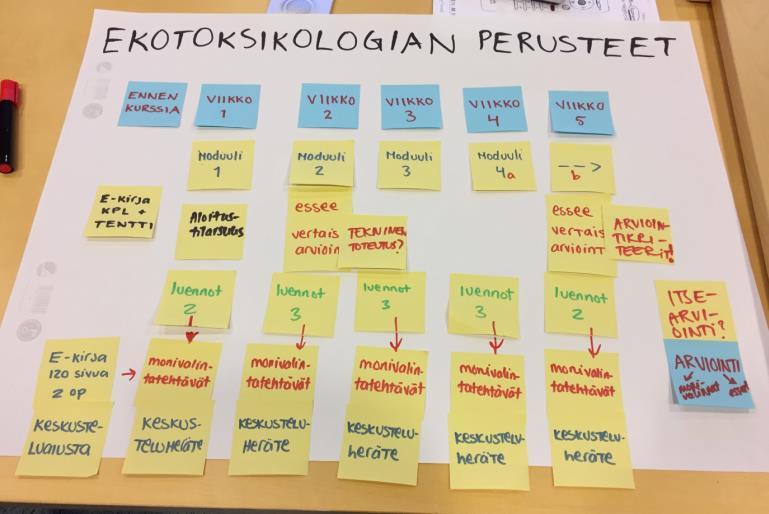 EKOTOKSIKOLOGIAN PERUSTEET
ENNEN
KURSSIA
VIIKKO
1
VIIKKO
2
VIIKKO
3
VIIKKO
4
VIIKKO
5
Moduuli
1
Moduuli
2
Moduuli
3
Moduuli
4a
-->
b
E-kirja
KPL +
TENTTI
Aloitus-
tilaisuus
essee
vertais
arvioin
TEKNINEN
TOTEUTUS?
essee
vertais
arvioint
ARVIOIN-
TIKRI-
TEERIT!
luennot
2
luennot
3
luennot
3
luennot
3
luennot
2
ITSE-
ARVI-
OINTI?
E-kirja
120 sivua
2 op
monivalin-
tatehtävät
monivalin-
tatehtävät
monivalin-
tatehtävät
monivalin-
tatehtävät
monivalin-
tatehtävät
ARVIOINTI
moni-
valinnat
essee
KESKUSTE-
LUALUSTA
KESKUS-
TELUHERÄTE
KESKUSTELU-
HERÄTE
KESKUSTELU-
heräte
KESKUSTELU-
heräte
KESKUSTELU-
heräte